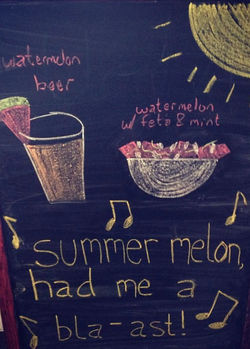 watermelon
beer
watermelon
w/ feta & mint
summer melon,
had me a
bla-ast!